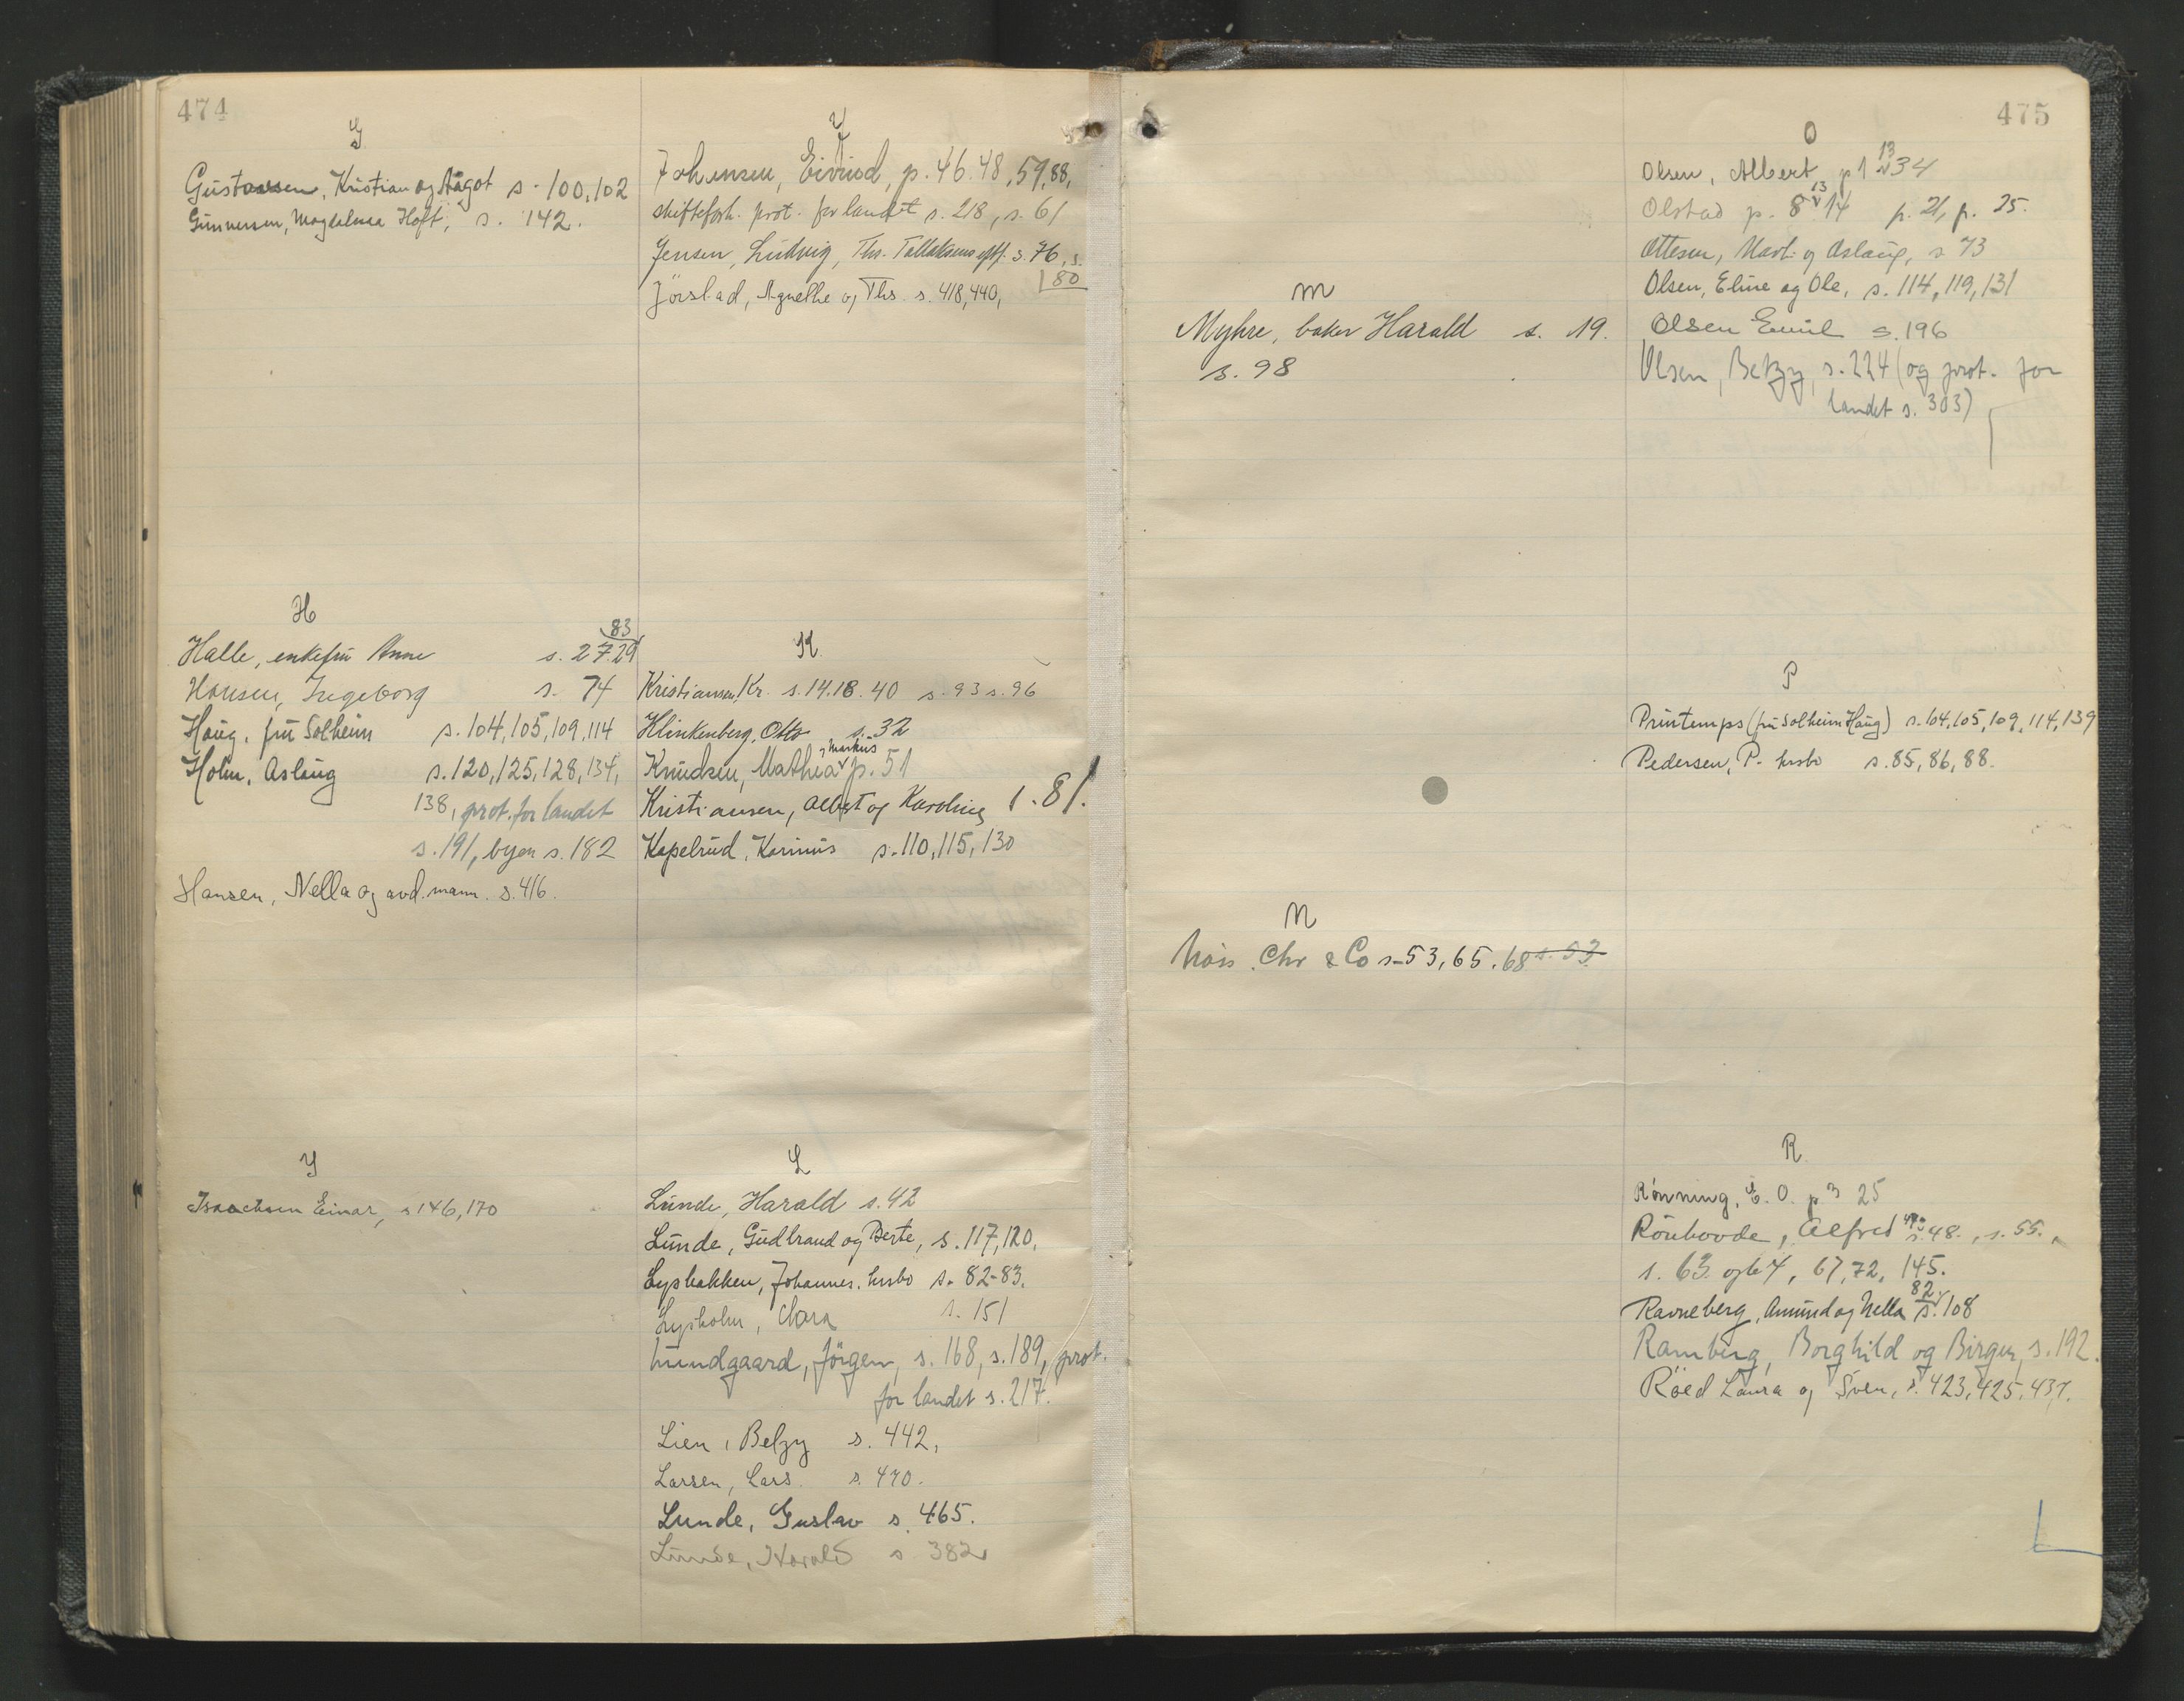 474
G
Gustavsen, Kristian og Aagot s. 100, 102
Gunnersen, Magdalena Hoft, s. 142.
H
83
Halle, enkefru Anne s. 27.29
Hansen, Ingeborg s. 74
Haug, fru Solheim s. 104, 105, 109, 114
Holm, Aslaug s. 120, 125, 128, 134,
138, prot. for landet
s. 191, byen s. 182
Hansen, Nella og avd. mann. s. 416.
I
Isaachsen Einar, s 146, 170
J
Johansen, Eivind, p. 46.48, 59, 88,
skifteforh. prot. for landet s. 218, s. 61
Jensen, Ludvig, Ths. Tallaksens eftf. s. 76, s.
80
Jörstad, Agnethe og Ths. s. 418, 440,
K
Kristiansen, Kr. s. 14.18.40 s. 93 s. 96
Klinkenberg, Otto s. 32
, Markus
Knudsen, Mathea p. 51
Kristiansen, Albert og Karoline s. 81.
Kapelrud, Karinius s. 110, 115, 130
L
Lunde, Harald s. 42
Lunde, Gudbrand og Berte, s. 117, 120,
Lysbakken, Johannes. hrsbo s. 82-83.
Lysholm, Clara s. 151
Lundgaard, Jörgen, s. 168, s. 189, prot.
for landet s. 217.
Lien, Betzy s. 442,
Larsen, Lars. s. 470.
Lunde, Gustav s. 465.
Lunde, Harald s. 382
M
Myhre, baker Harald s. 19.
s. 98
N
Næss. Chr & Co s-53, 65. 68 s. 53
475
O
13
Olsen, Albert p 1 34
13
Olstad p. 8 14 p. 21, p. 25.
Ottesen, Mart. og Aslaug, s 73
Olsen, Eline og Ole, s. 114, 119, 131
Olsen Emil s. 196
Olsen, Betzy, s. 224 (og prot. for
landet s. 303)
P
Printemps (fru Solheim Haug) s. 104, 105, 109, 114, 139
Pedersen, P. hrsbo s. 85, 86, 88.
R
Rönning, E. O. p. 25
Rönhovde, Alfred s. 48., s. 55.,
s. 63 og 64, 67, 72, 145.
82
Ravneberg, Amund og Nella s. 108
Ramberg, Borghild og Birger, s. 192.
Röed Laura og Sven, s. 423, 425, 437.